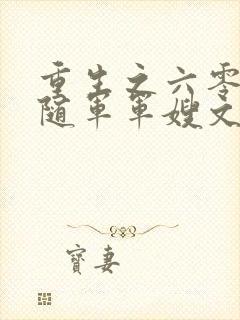 重生之六零
随军军嫂文
寶妻